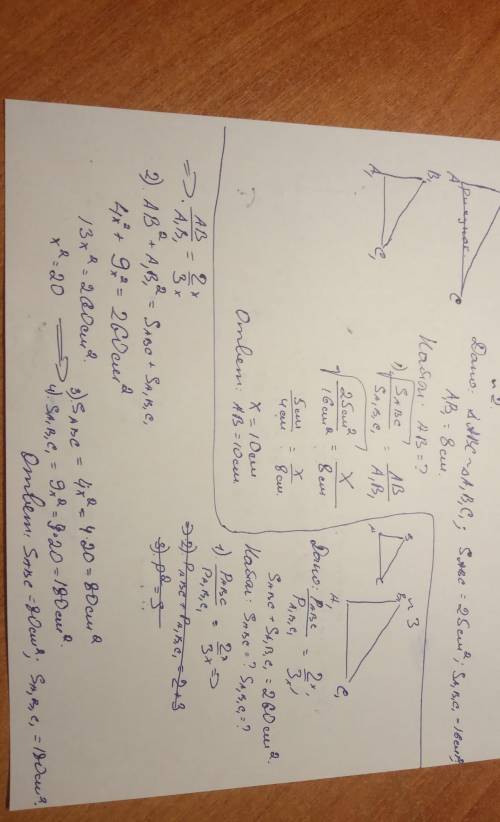 Дано: △ABC ~ △A₁B₁C₁; S_ABC = 25см²; S_A₁B₁C₁ = 16см²
A₁B₁ = 8см.
Найти: AB = ?
A
C
B₁
A₁
C₁
1) √(S_ABC / S_A₁B₁C₁) = AB / A₁B₁
√(25см² / 16см²) = x / 8см
5см / 4см = x / 8см
x = 10см
Ответ: AB = 10см
№3
B
A
C
B₁
A₁
C₁
Дано: P_ABC / P_A₁B₁C₁ = 2x / 3x;
S_ABC + S_A₁B₁C₁ = 260см².
Найти: S_ABC = ? S_A₁B₁C₁ = ?
1) P_ABC / P_A₁B₁C₁ = 2x / 3x ⇒
⇒ 2) P_ABC + P_A₁B₁C₁ = 2 + 3
3) P² = 3
⇒ AB / A₁B₁ = 2x / 3x
2). AB² + A₁B₁² = S_ABC + S_A₁B₁C₁
4x² + 9x² = 260см²
13x² = 260см².
x² = 20 ⇒
3) S_ABC = 4x² = 4·20 = 80см²
4). S_A₁B₁C₁ = 9x² = 9·20 = 180см².
Ответ: S_ABC = 80см²; S_A₁B₁C₁ = 180см².